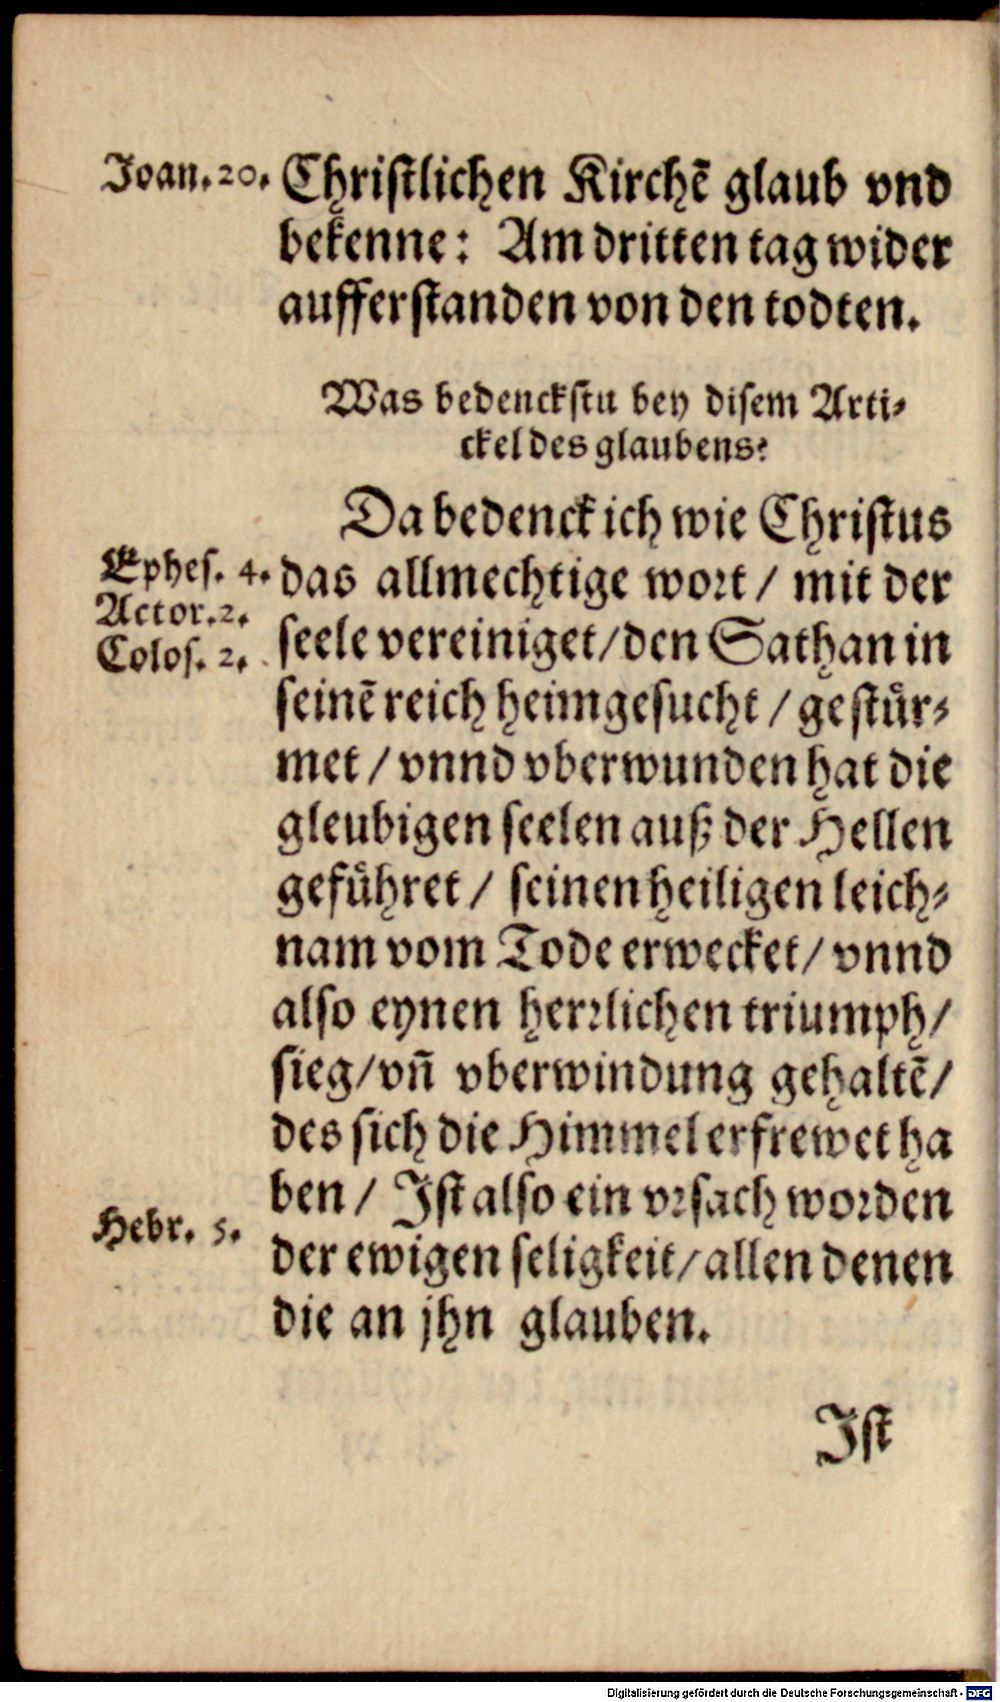 Joan. 20. Christlichen Kirchẽ glaub vnd
bekenne: Am dritten tag wider
aufferstanden von den todten.
Was bedenckstu bey disem Arti-
ckel des glaubens?
Da bedenck ich wie Christus
Ephes. 4. das allmechtige wort / mit der
Actor. 2.
seele vereiniget / den Sathan in
Colos. 2.
seinẽ reich heimgesucht / gestür-
met / vnnd vberwunden hat die
gleubigen seelen auß der Hellen
geführet / seinen heiligen leich-
nam vom Tode erwecket / vnnd
also eynen herrlichen triumph /
sieg / vñ vberwindung gehaltẽ /
des sich die Himmel erfrewet ha
ben / Ist also ein vrsach worden
Hebr. 5.
der ewigen seligkeit / allen denen
die an jhn glauben.
Ist
Digitalisierung gefördert durch die Deutsche Forschungsgemeinschaft - DFG